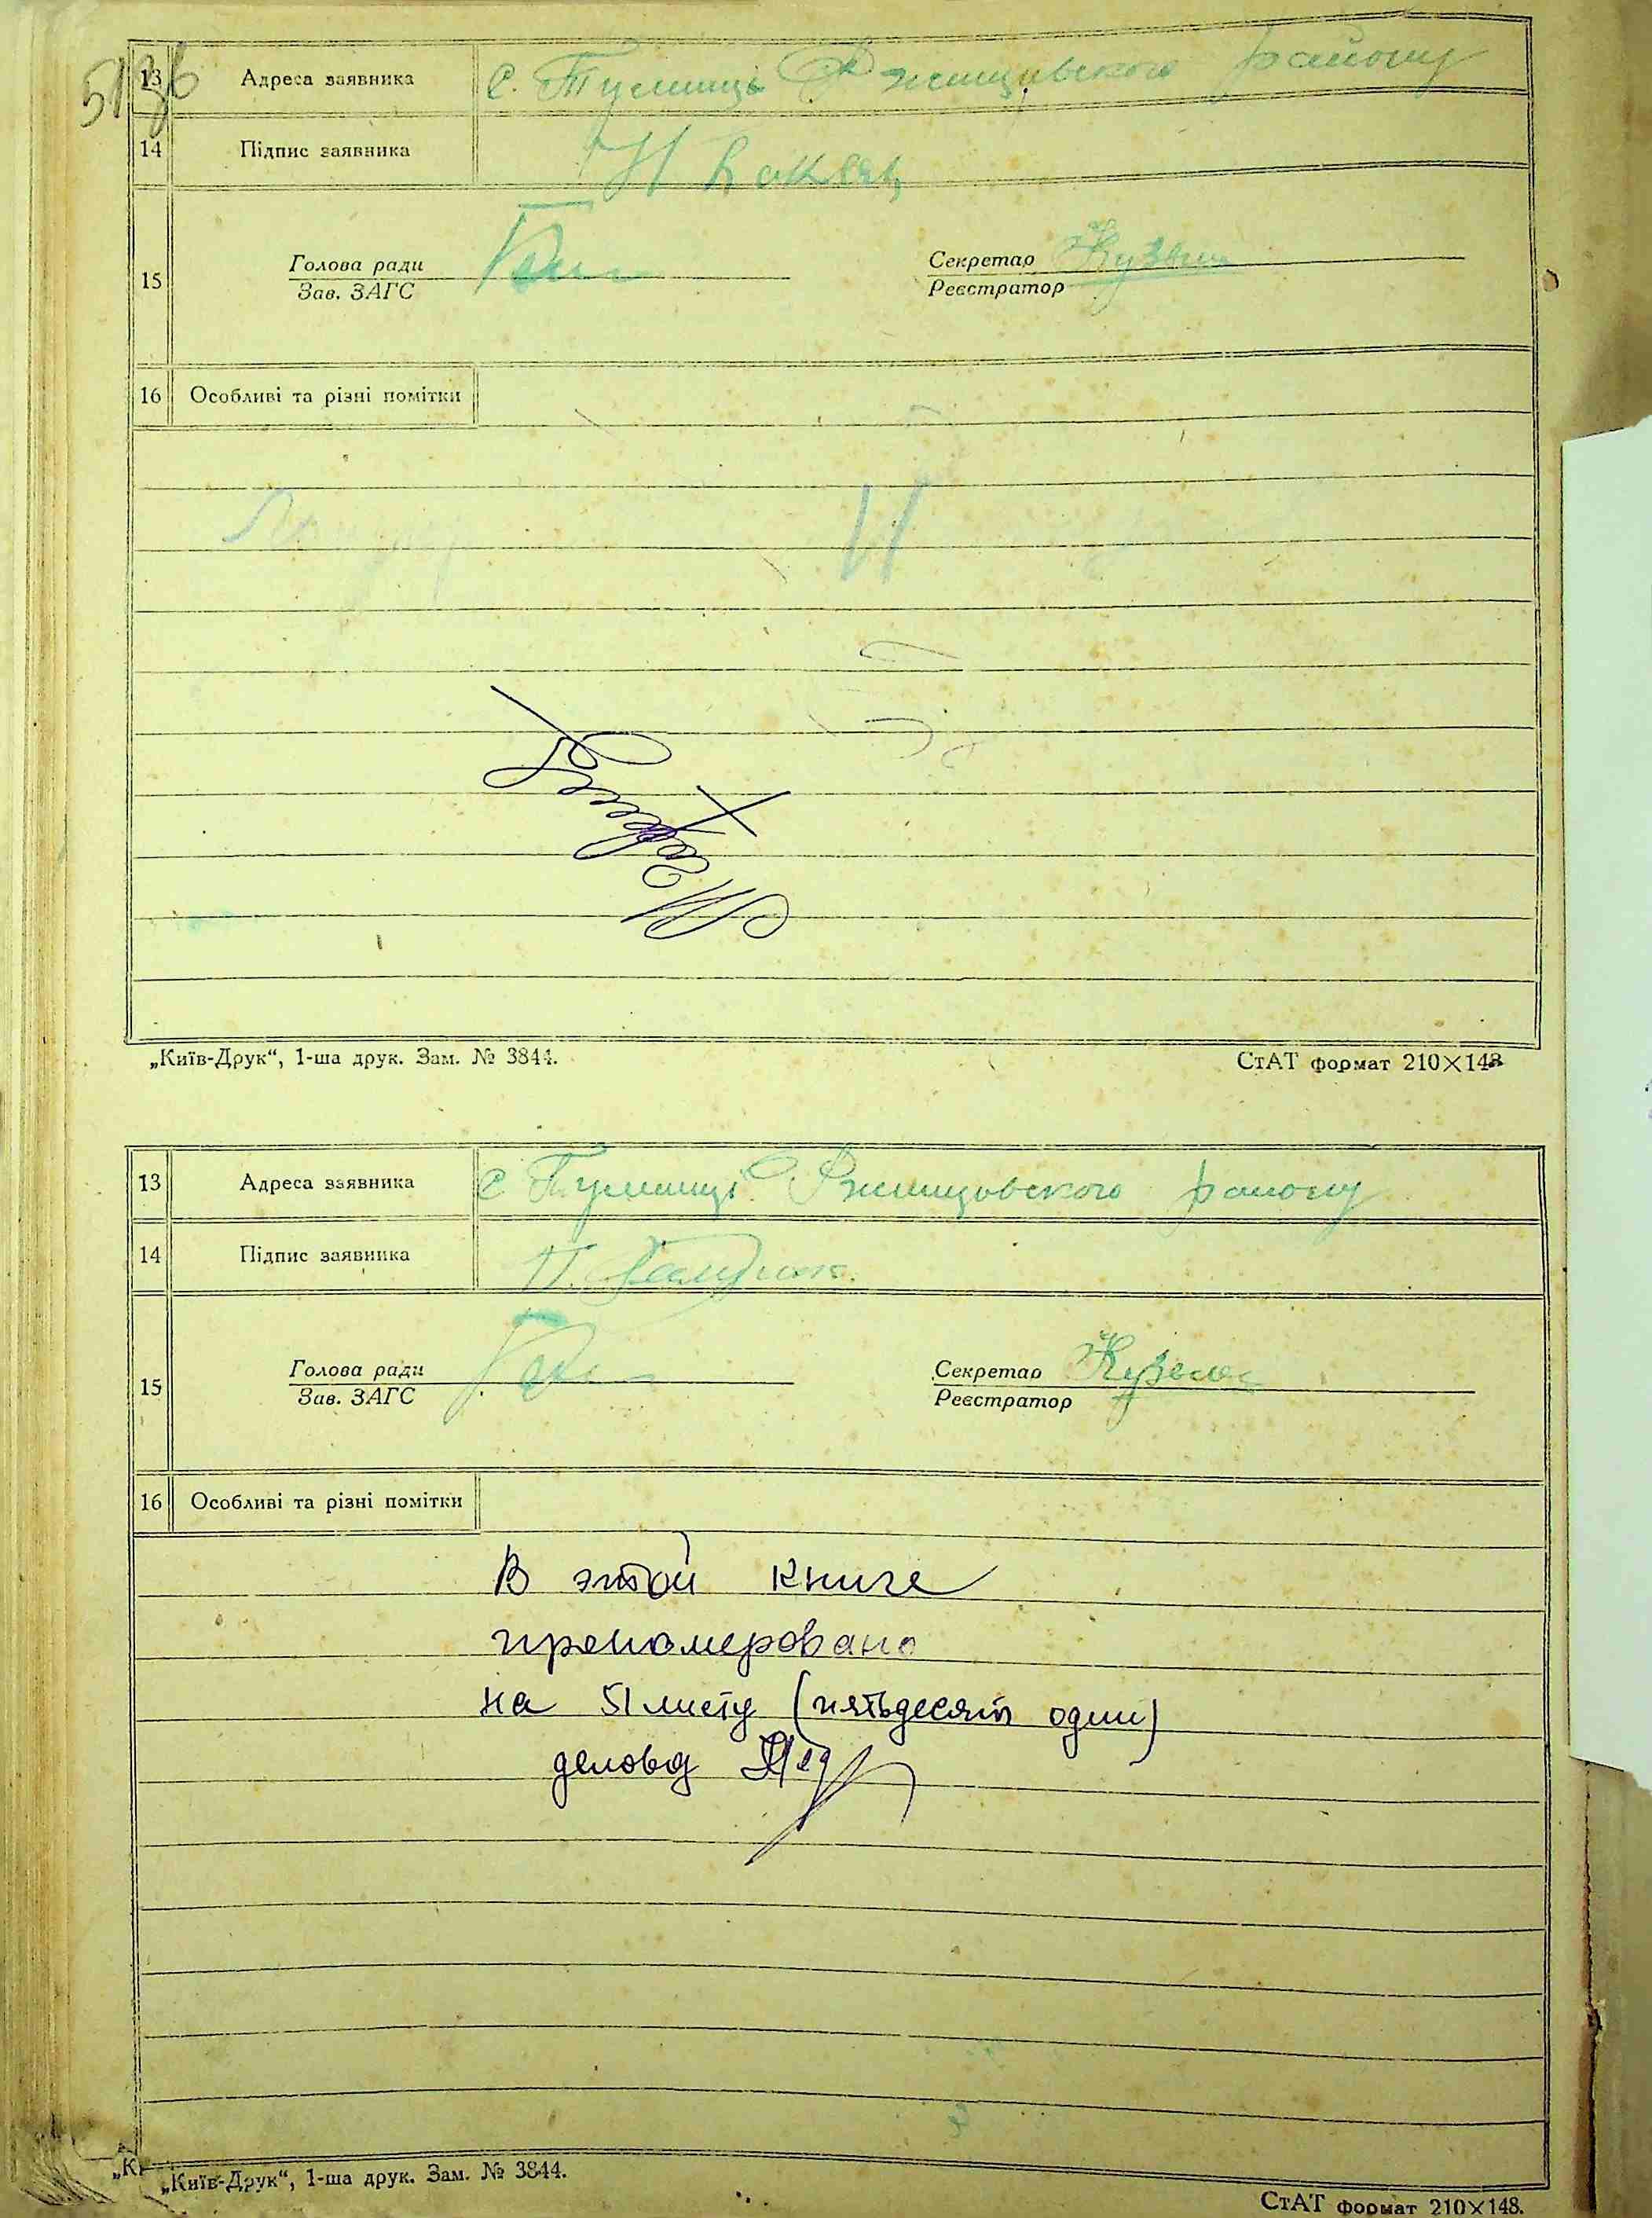 13 Адреса заявника с. Тулинці Ржищівського району
14 Підпис заявника
15 Голова ради Секретар
Зав. ЗАГС Реєстратор
16 Особливі та різні помітки
„Київ-Друк“, 1-ша друк. Зам. № 3844. СтАТ формат 210×148
13 Адреса заявника с Тулинці Ржищовского району
14 Підпис заявника
15 Голова ради Секретар
Зав. ЗАГС Реєстратор
16 Особливі та різні помітки
В этой книге
прономеровано
на 51 листу (пятьдесят один)
деловод
„Київ-Друк“, 1-ша друк. Зам. № 3844.
СтАТ формат 210×148.